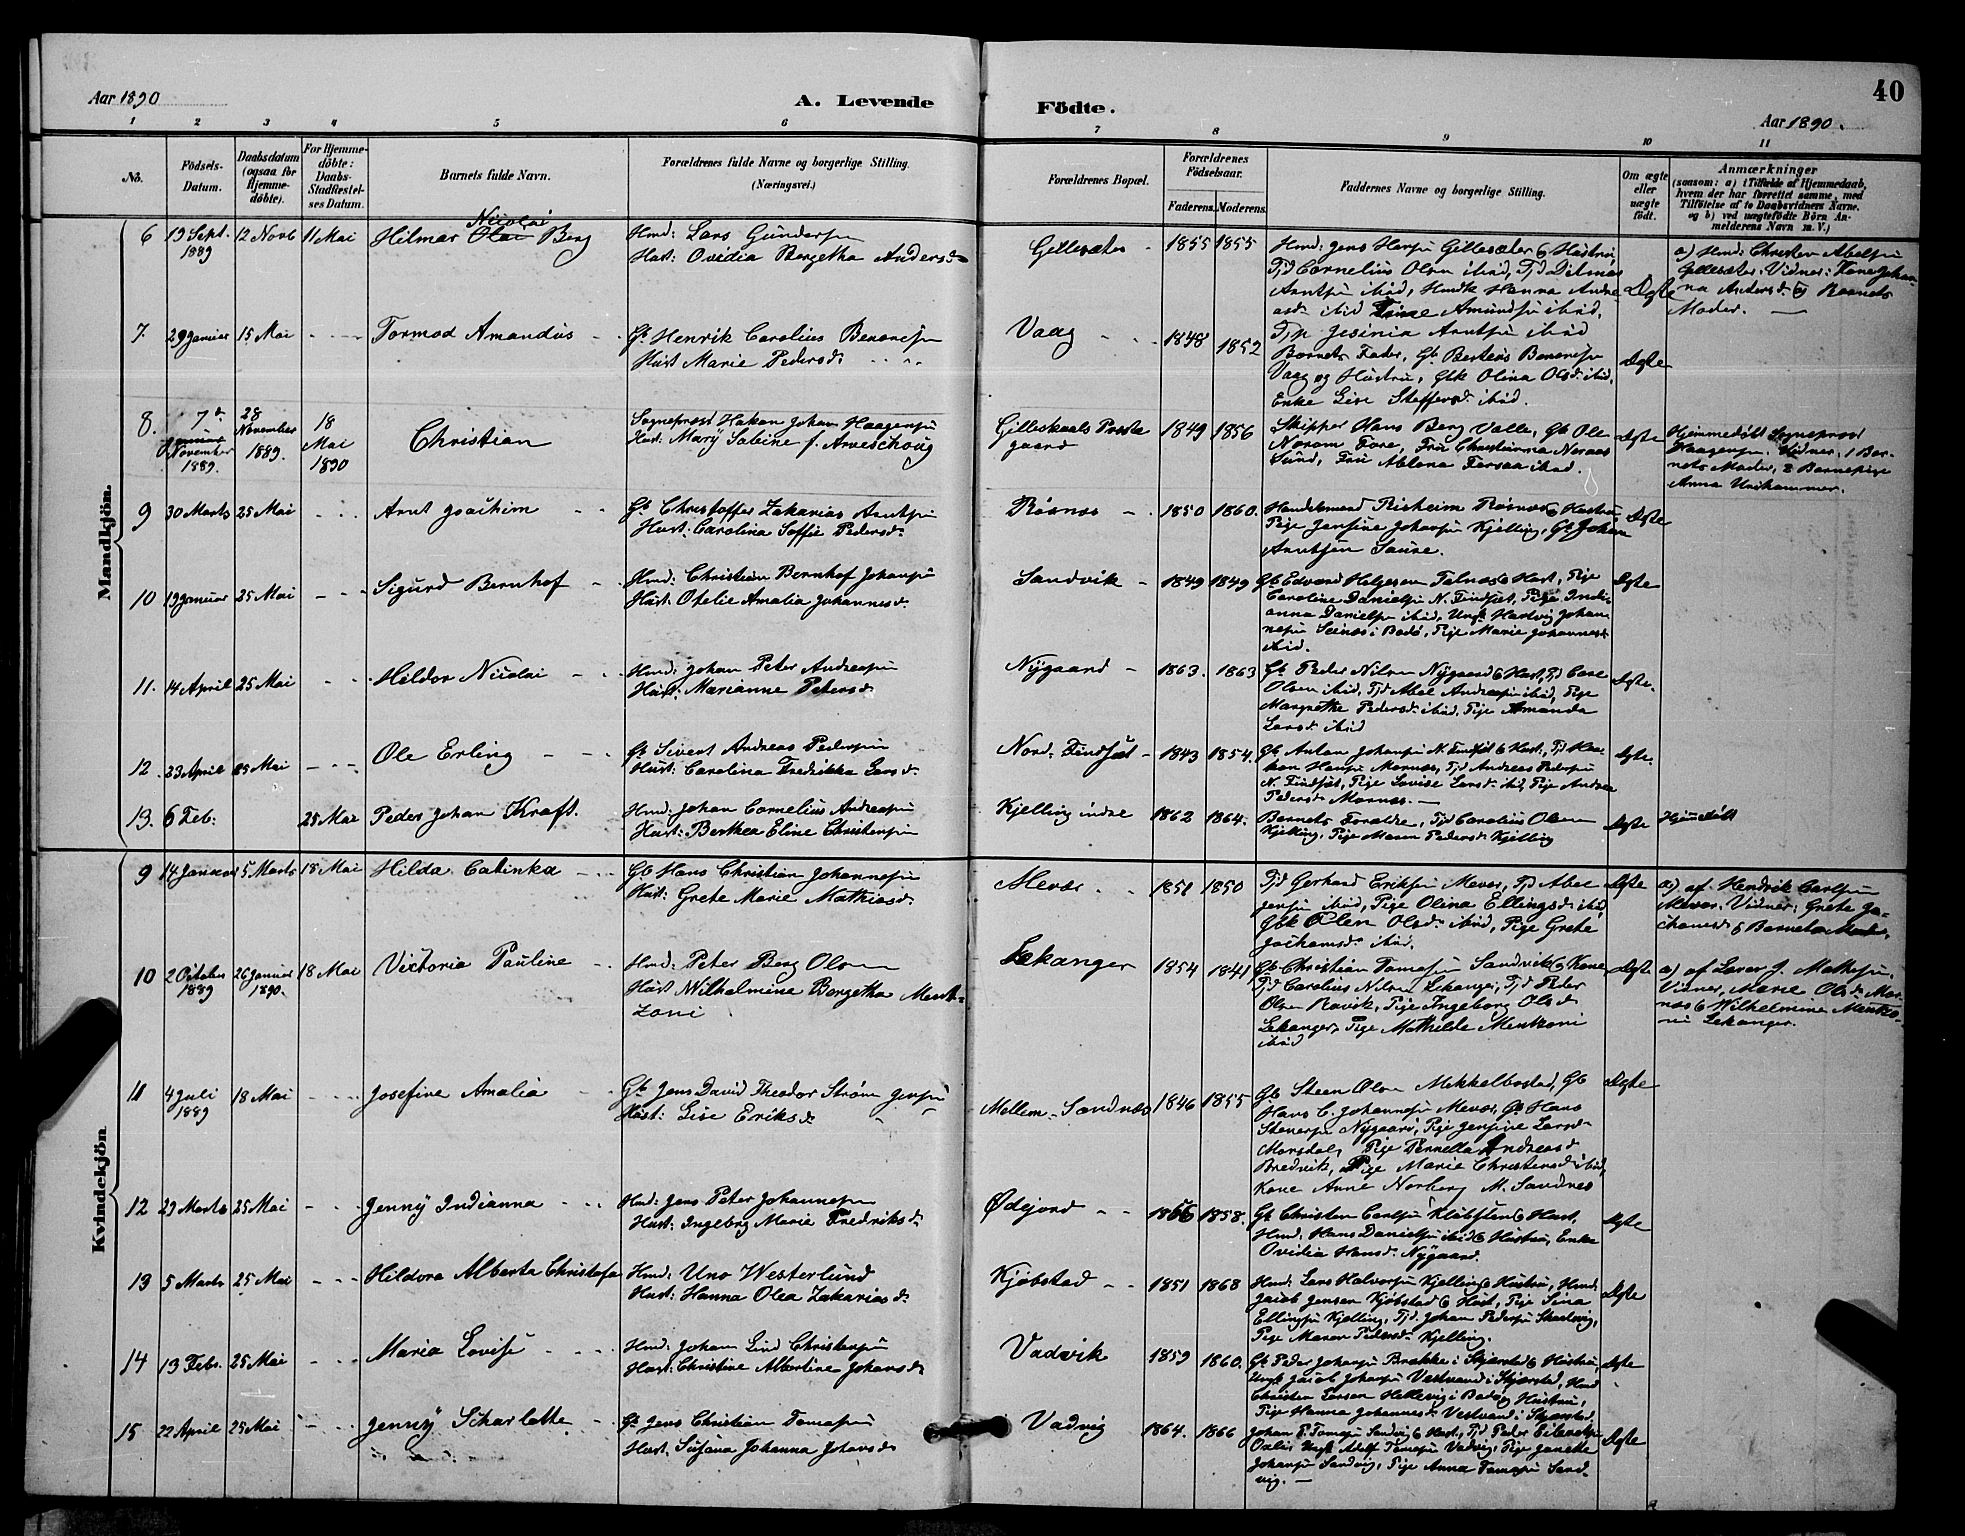 Aar 1890
A. Levende
Födte.
Aar 1890.
40
1 2 3 4 5 6 7 8 9 10 11
No.
Födsels-
Datum.
Daabsdatum
(ogsaa for
Hjemme-
döbte).
For Hjemme-
döbte:
Daabs-
Stadfæstel-
ses Datum.
Barnets fulde Navn.
Forældrenes fulde Navne og borgerlige Stilling.
(Næringsvei.)
Forældrenes Bopæl.
Forældrenes
Födselsaar.
Faderens. Moderens.
Faddernes Navne og borgerlige Stilling.
Om ægte
eller
uægte
födt.
Anmærkninger
(saasom: a) i Tilfælde af Hjemmedaab,
hvem der har forrettet samme, med
Tilföielse af to Daabsvidners Navne.
og b) ved uægtefödte Börn An-
melderens Navn m. V.)
Mandkjön.
6 19 Sept. 1889 12 Novb 11 Mai
Nicolai
Hilmar Olai Berg
Hmd: Lars Gundersen
Hust: Ovidia Bergetha Andersd
Gillesæter - 1855 1855
Hmd: Jens Hansen Gillesæter & Hustru,
Tjd Cornelius Olsen ibid, Tjd Ditmar
Arntsen ibid, Hmdk Hanna Andre
asd ibid Amundsen ibid,
Tjp Jesinia Arntsen ibid
Ægte
a) Hmd: Christen Abelsen
Gillesæter. Vidner: Kone Johan-
na Andersd. og Barnets
Moder. —
7. 29 Januar 15 Mai - - -
Tormod Amandus
Gb Henrik Carolius Benonisen
Hust Marie Pedersd
Vaag 1848 1852
Barnets Fader, Gb Berteus Benonisen
Vaag og Hustru, Gbk Olina Olsd. ibid,
Enke Lise Steffensd. ibid.
Ægte
8. 7de Januar November 1889. 28 November 1889. 18 Mai 1890
Christian
Sogneprest Hakon Johan Haagensen
Hust. Mary Sabine f. Arveschoug
Gilleskaals Preste
gaard 1849 1856
Skipper Hans Berg Valle, Gb Ole
Norum Fore, Fru Christianna Noraas
Sund, Fru Ablona Forsaa ibid.
Ægte
Hjemmedöbt Sogneprest
Haagensen. Vidner: 1 Bar-
nets Moder, 2 Barnepige
Anna Unhammer.
9 30 Marts 25 Mai - - -
Arnt Joachim
Gb Christoffer Zakarias Arntsen
Hust: Carolina Soffie Pedersd.
Røsnes - 1850 1860.
Handelsmand Risheim Røsnes & Hustru
Pige Jensine Johansen Kjelling, Gb Johan
Arntsen Saura.
Ægte
10 19 Januar 25 Mai - - -
Sigurd Bernhof
Hmd: Christian Bernhof Johansen
Hust: Ofelie Amalia Johannesd.
Sandvik - 1849 1849
Gb Edvard Helgesen Telnes & Hust, Pige
Caroline Danielsen N. Findset, Pige Indi-
anna Danielsen ibid, Ungk Hartvig Johan-
nesen Seines i Bodö, Pige Marie Johannesd
ibid.
Ægte
11. 14 April 25 Mai - - -
Hildor Nicolai
Hmd: Johan Peter Andreasen
Hust: Marianne Petersd.
Nygaard - 1863. 1863
Gb Peder Nilsen Nygaard & Hust, Tjd Carl
Olsen ibid, Tjd Abel Andreasen ibid, Pige
Margrethe Pedersd. ibid, Pige Amanda
Larsd. ibid
Ægte.
12. 23 April 25 Mai - - -
Ole Erling
Gb Sivert Andreas Pedersen
Hust: Carolina Fredrikka Larsd.
Nord. Findset - 1843 1854.
Gb Anton Johansen N. Findset & Hust, Tjd Haa-
kon Hansen Mornes, Tjd Andreas Pedersen
N. Findset, Pige Lovise Larsd. ibd, Pige Andrea
Pedersd. Mornes. —
Ægte.
13. 6 Feb: 25 Mai
Peder Johan Kraft.
Hmd: Johan Cornelius Andreasen
Hust: Berthea Eline Christensen
Kjelling indre 1862 1864.
Barnets Forældre, Tjd Carolius Olsen
Kjelling, Pige Maren Pedersd. Kjelling
Ægte
Hjemmedöbt
Kvindekjön
9 14 Januar 5 Marts 18 Mai
Hilda Catinka
Gb Hans Christian Johannesen
Hust: Grete Marie Mathiasd.
Mevær. 1851 1850
Tjd Gerhard Eriksen Mevær, Tjd Abel
Jensen ibid, Pige Olina Ellingsd. ibid,
Gbk Olsd. ibid, Pige Grete
Jochumsd. ibid.
Ægte
a) af Hendrik Carlsen
Mevær. Vidner: Grete Jo-
chumsd & Barnets Moder.
10 2 October 1889 26 Januar 1890. 18 Mai
Victoria Pauline
Hmd: Peter Berg Olsen
Hust Wilhelmine Bergetha Ment-
zoni
Lekanger 1854 1841
Gb Christian Tomasen Sandvik & Kone,
Tjd Carolius Nilsen Lekanger, Tjd Peder
Olsen Ravik, Pige Ingeborg Olsd
Lekanger, Pige Mathilde Mentzoni
ibid
Ægte
a) af Laver J. Mathisen.
Vidner, Marie Olsd. Mor-
næs & Wilhelmine Mentzo-
ni Lekanger.
11 4 Juli 1889 18 Mai - - -
Josefine Amalia
Gb Jens David Theodor Strøm Jensen
Hust: Lise Eriksd.
Mellem-Sandnæs 1846 1855
Gb Steen Olsen Mekkelbostad, Gb
Hans C. Johannesen Mevær, Gb Hans
Stenersen Nygaard, Pige Jensine Larsd.
Morsdal, Pige Pernella Andreasd
Bredvik, Pige Marie Christensd ibid,
Kone Anne Norberg M. Sandnes
Ægte
12 29 Marts 25 Mai - - -
Jenny Indianna
Hmd: Jens Peter Johannesen
Hust: Ingebrg Marie Fredriksd.
Ødejord - - 1866 1858.
Gb Christen Carlsen Klæbsten & Hust,
Hmd. Hans Danielsen ibid & Hustru, Enke
Ovidia Hansd. Nygaard.
Ægte
13 5 Marts 25 Mai - - -
Hildora Alberta Christofa
Hmd: Uno Westerlund
Hust: Hanna Olea Zakariasd.
Kjøbstad - - 1851 1868
Hmd Lars Halvorsen Kjelling & Hustru, Hmd
Jacob Jensen Kjøbstad & Hust, Pige Sina
Ellingsen Kjelling, Tjd. Johan Pedersen Skadevig,
Pige Maren Pedersd. Kjelling.
Ægte
14 13 Febr. 25 Mai - - -
Maria Lovise
Hmd: Johan Lind Christensen
Hust: Christine Albertine Johansd.
Vadvik 1859 1860.
Gb Peder Johansen Brække i Skjerstad & Hustru,
Ungk Jacob Johansen Vestvand i Skjerstad, Hmd
Christen Larsen Hellevig i Bodø & Hustru,
Pige Hanna Johannesd. Vestvand i Skjerstad.
Ægte
15 22 April 25 Mai - - -
Jenny Scharlotte
Gb Jens Christian Tomasen
Hust. Susana Johanna Johansd.
Vadvig 1864. 1866
Johan P. Tomasen Sandvig & Hust, Tjd Peder Eilertsen
Ungk Adolf Tomasen Vadvig, Pige Janette
Johansen Sandvig, Pige Anna Tomasen Sand-
vig. —
Ægte